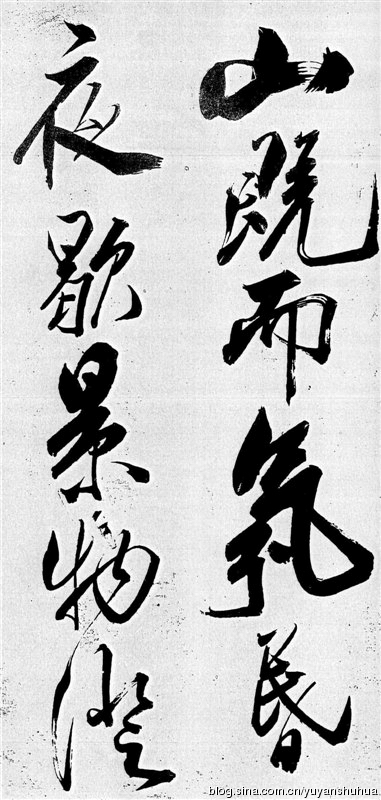 山既而氛昏
夜歇景物澄
blog.sina.com.cn/yuyanshuhua